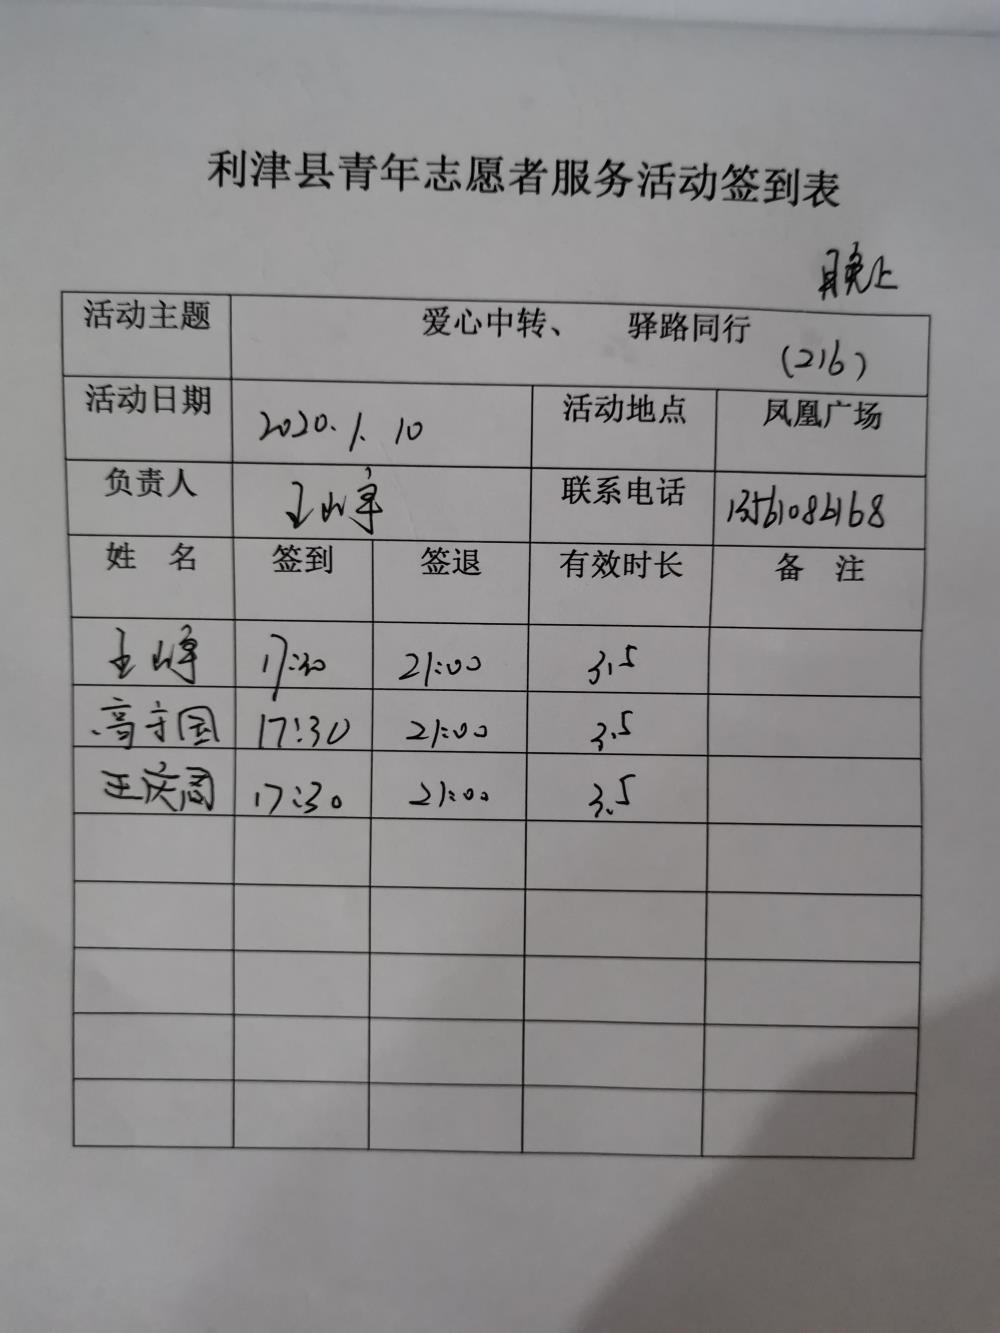 利津县青年志愿者服务活动签到表
晚上
活动主题 爱心中转、 驿路同行 (216)
活动日期 2020.1.10 活动地点 凤凰广场
负责人 王山亭 联系电话
姓 名 签到 签退 有效时长 备 注
王山亭 17:30 21:00 3.5
高守国 17:30 21:00 3.5
王庆周 17:30 21:00 3.5